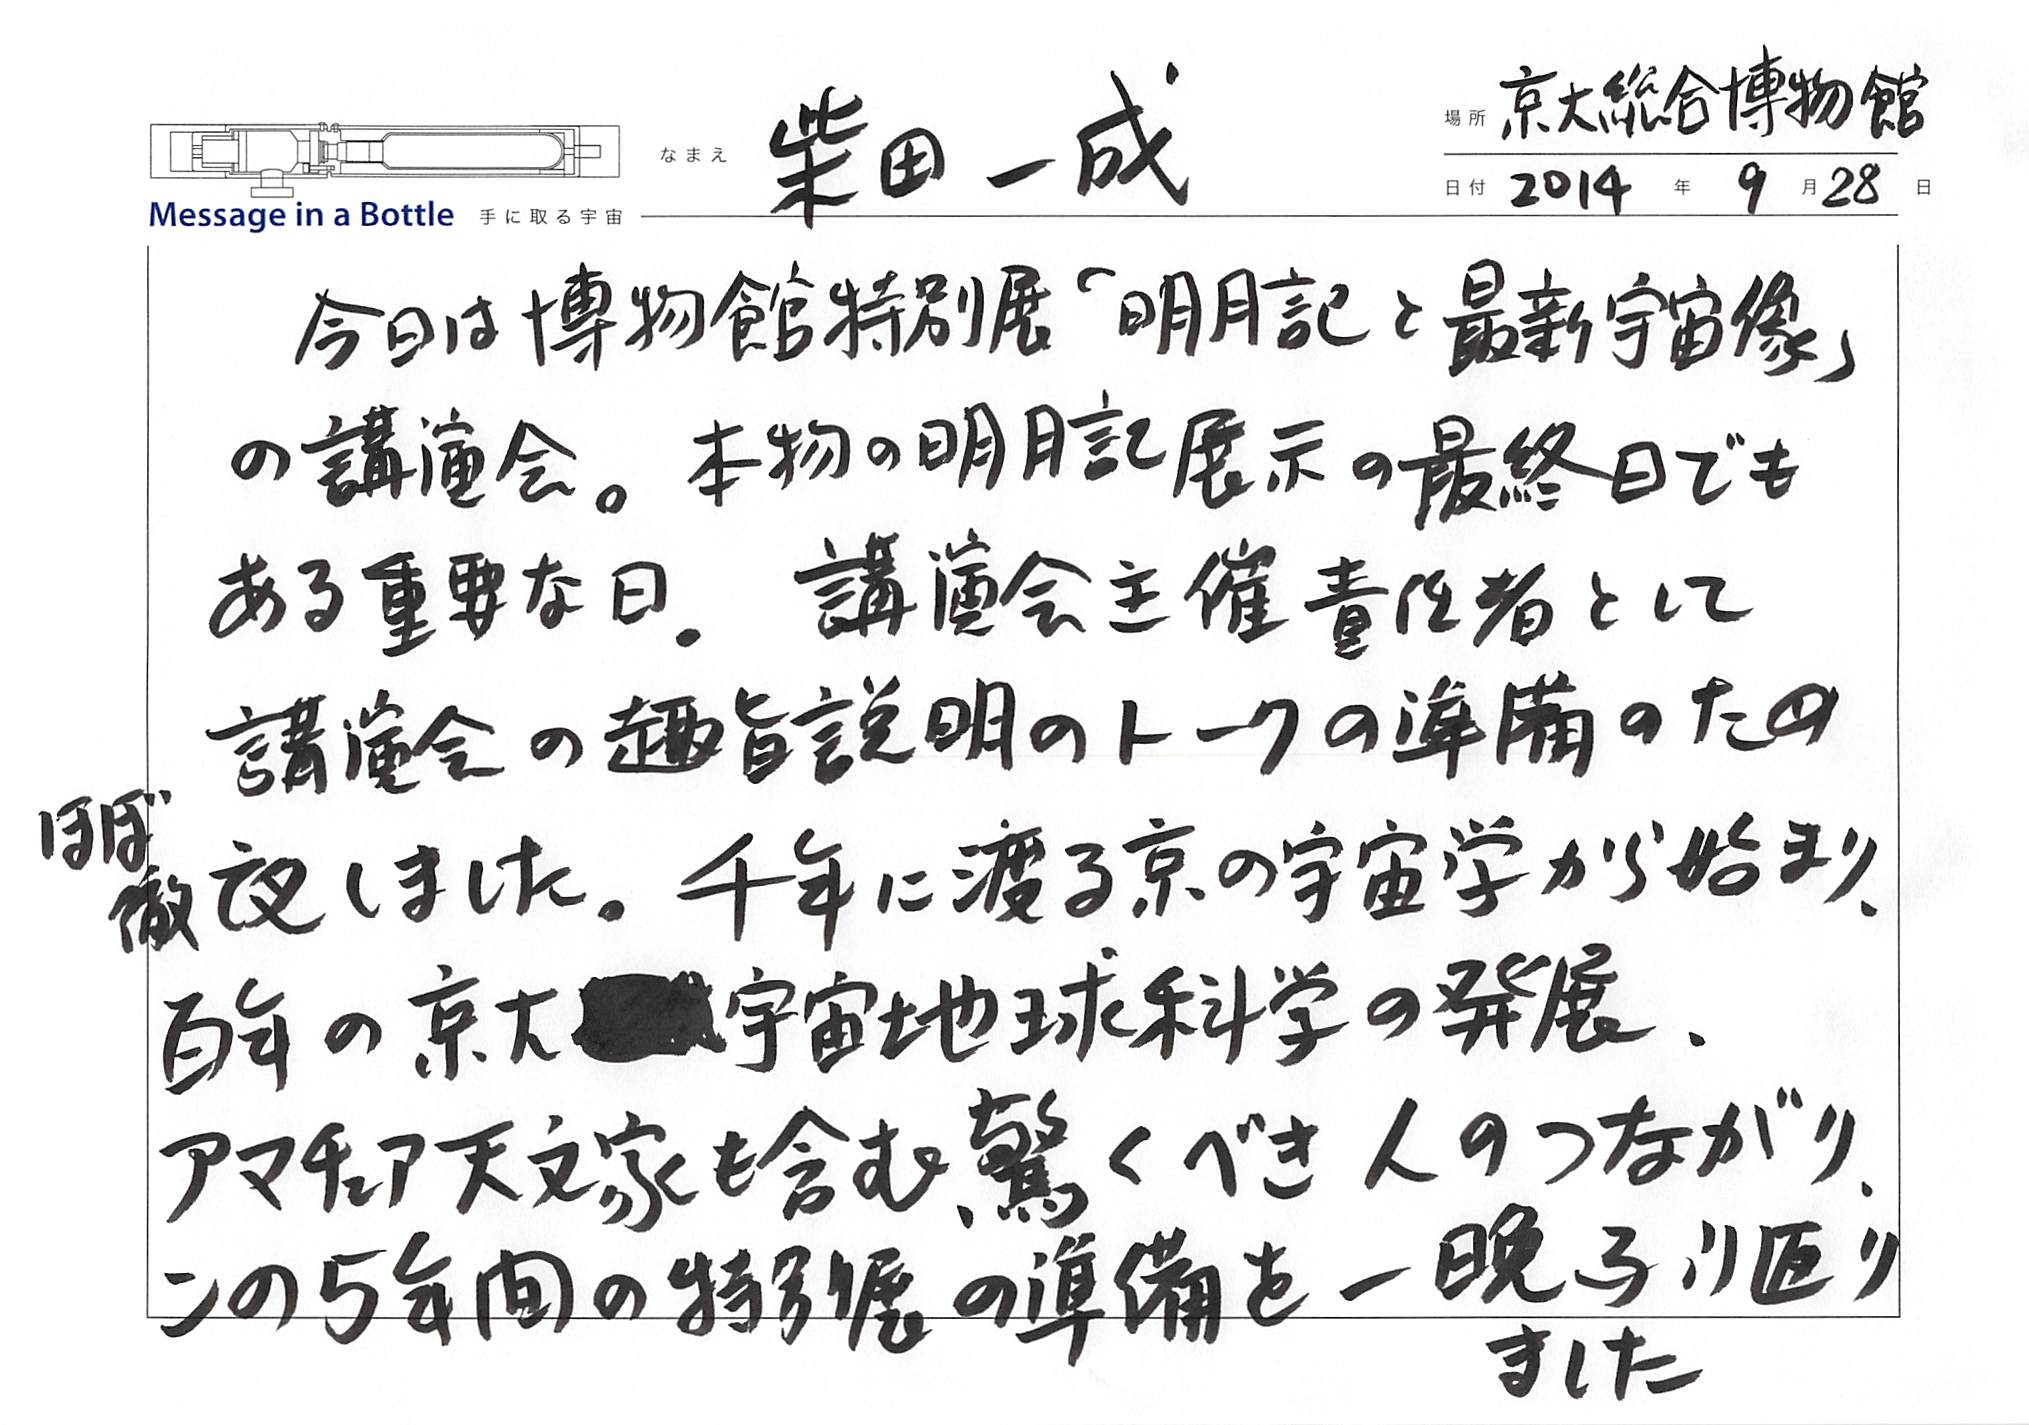 Message in a Bottle 手に取る宇宙
なまえ 柴田一成
場所 京大総合博物館
日付 2014 年 9 月 28 日
今日は博物館特別展「明月記と最新宇宙像」
の講演会。本物の明月記展示の最終日でも
ある重要な日。講演会主催責任者として
講演会の趣旨説明のトークの準備のため
ほぼ
徹夜しました。千年に渡る京の宇宙学から始まり、
百年の京大宇宙地球科学の発展、
アマチュア天文家も含む、驚くべき人のつながり、
この5年間の特別展の準備を一晩ふり返り
ました